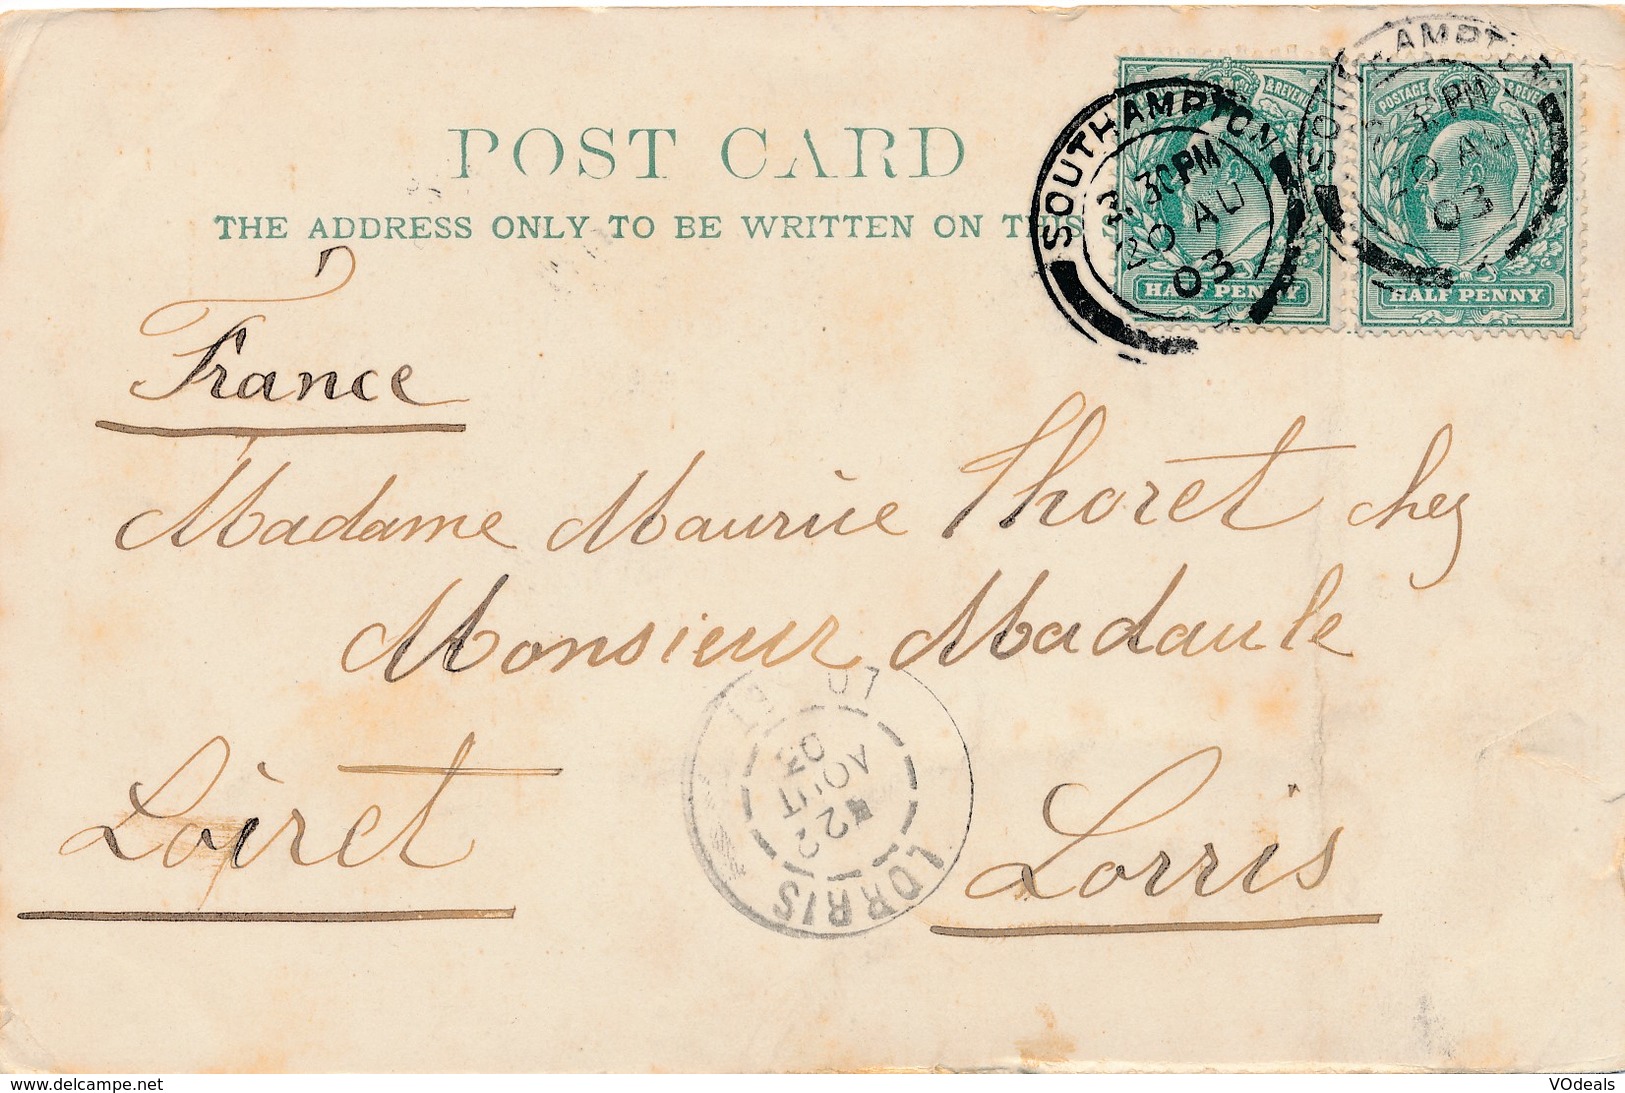 POST CARD
THE ADDRESS ONLY TO BE WRITTEN ON THIS S
SOUTHAMPTON
30PM
20 AU
03
& REVENUE
HALF PENNY
SOUTHAMPTON
PM
20 AU
03
POSTAGE & REVENUE
HALF PENNY
France
Madame Maurice Thoret chez
Monsieur Madaule
Loiret
Lorris
LORRIS
22
AOUT
03
www.delcampe.net
VOdeals